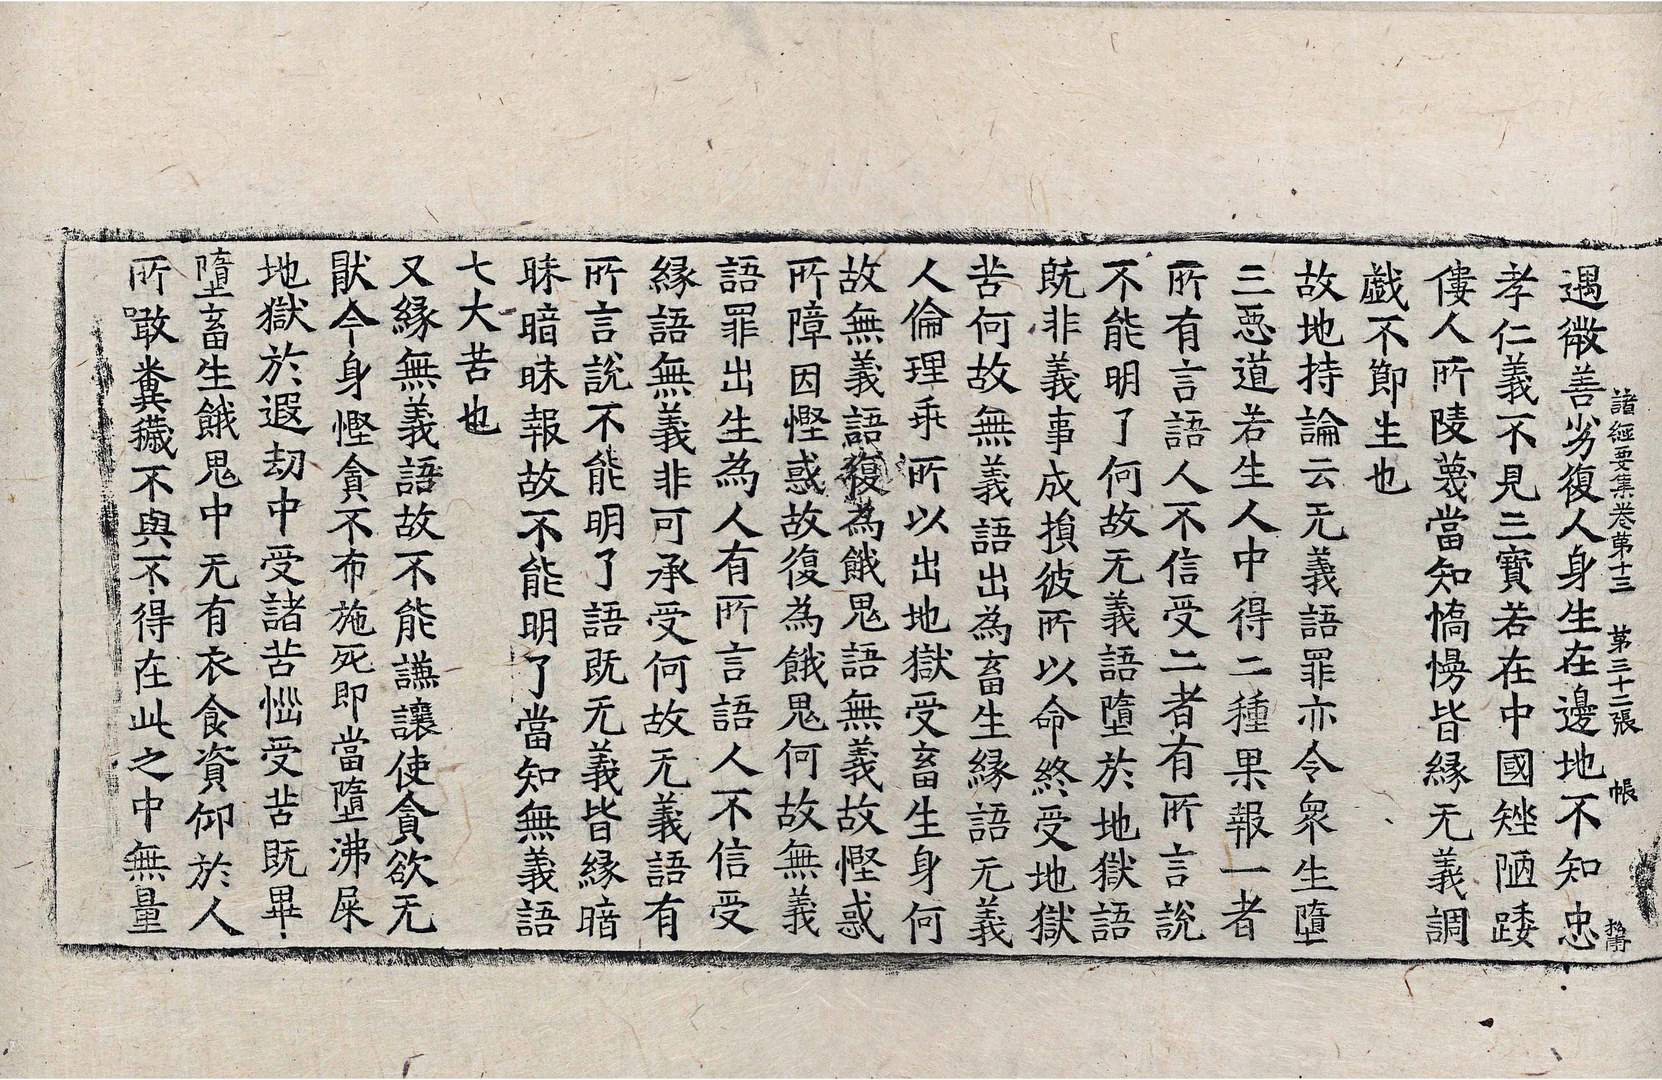 諸經要集卷第十三 第三十二張 帳
遇微善劣復人身生在邊地不知忠
孝仁義不見三寶若在中國矬陋踒
僂人所陵蔑當知憍慢皆緣无義調
戯不節生也
故地持論云无義語罪亦令衆生墮
三惡道若生人中得二種果報一者
所有言語人不信受二者有所言說
不能明了何故无義語墮於地獄語
既非義事成損彼所以命終受地獄
苦何故無義語出為畜生緣語无義
人倫理乖所以出地獄受畜生身何
故無義語復為餓鬼語無義故慳惑
所障因慳惑故復為餓鬼何故無義
語罪出生為人有所言語人不信受
緣語無義非可承受何故无義語有
所言說不能明了語既无義皆緣暗
昧暗昧報故不能明了當知無義語
七大苦也
又緣無義語故不能謙讓使貪欲无
猒今身慳貪不布施死即當墮沸屎
地獄於遐劫中受諸苦惱受苦既畢
墮畜生餓鬼中无有衣食資仰於人
所噉糞穢不與不得在此之中無量